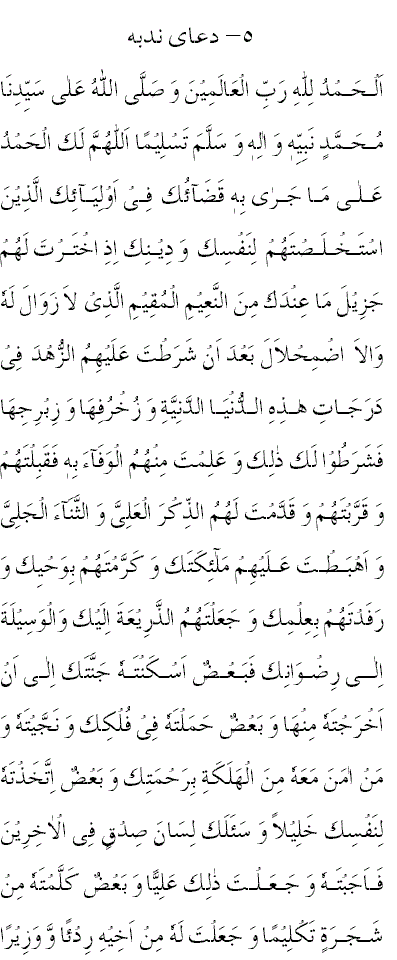 ۵– دعای ندبه
اَلْـحَـمْدُ لِلّٰهِ رَبِّ الْعَالَمِیْنَ وَ صَلَّی اللّٰهُ عَلٰی سَیِّدِنَا
مُـحَـمَّدٍ نَبِیِّهٖ وَ اٰلِهٖ وَ سَلَّمَ تَسْلِیْمًا اَللّٰهُمَّ لَكَ الْحَمْدُ
عَـلٰـی مَـا جَـرٰی بِهٖ قَضَآئُكَ فِـیْ اَوْلِیَـآئِكَ الَّذِیْنَ
اسْتَـخْـلَـصْتَهُمْ لِنَفْسِكَ وَ دِیْـنِكَ اِذِ اخْتَـرْتَ لَهُمْ
جَزِیْلَ مَا عِنْدَكَ مِنَ النَّعِیْمِ الْمُقِیْمِ الَّذِیْ لَا زَوَالَ لَهٗ
وَالَا اضْمِحْلَالَ بَعْدَ اَنْ شَرَطْتَ عَلَیْهِمُ الزُّهْدَ فِیْ
دَرَجَـاتِ هٰـذِهِ الـدُّنْیَـا الدَّنِیَّةِ وَ زُخْرُفِهَا وَ زِبْرِجِهَا
فَشَرَطُوْا لَكَ ذٰلِكَ وَ عَلِمْتَ مِنْهُمُ الْوَفَآءَ بِهٖ فَقَبِلْتَهُمْ
وَ قَرَّبْتَهُمْ وَ قَدَّمْتَ لَهُمُ الذِّكْرَ الْعَلِیَّ وَ الثَّنَآءَ الْجَلِیَّ
وَ اَهْبَـطْـتَ عَـلَیْهِمْ مَلٰٓئِكَتَكَ وَ كَرَّمْتَهُمْ بِوَحْیِكَ وَ
رَفَدْتَهُمْ بِعِلْمِكَ وَ جَعَلْتَهُمُ الذَّرِیْعَةَ اِلَیْكَ وَالْوَسِیْلَةَ
اِلٰـــی رِضْـوَانِـكَ فَبَـعْـضٌ اَسْـكَنْتَـهٗ جَنَّتَكَ اِلٰـی اَنْ
اَخْرَجْتَهٗ مِنْهَا وَ بَعْضٌ حَمَلْتَهٗ فِیْ فُلْكِكَ وَ نَجَّیْتَهٗ وَ
مَنْ اٰمَنَ مَعَهٗ مِنَ الْهَلَكَةِ بِرَحْمَتِكَ وَ بَعْضٌ اِتَّخَذْتَهٗ
لِنَفْسِكَ خَلِیْلاً وَ سَئَلَكَ لِسَانَ صِدْقٍ فِی الْاٰخِرِیْنَ
فَـاَجَبْتَـهٗ وَ جَـعَـلْـتَ ذٰلِكَ عَلِیًّا وَ بَعْضٌ كَلَّمْتَهٗ مِنْ
شَـجَـرَةٍ تَكْلِیْمًا وَ جَعَلْتَ لَهٗ مِنْ اَخِیْهِ رِدْئًا وَّ وَزِیْرًا